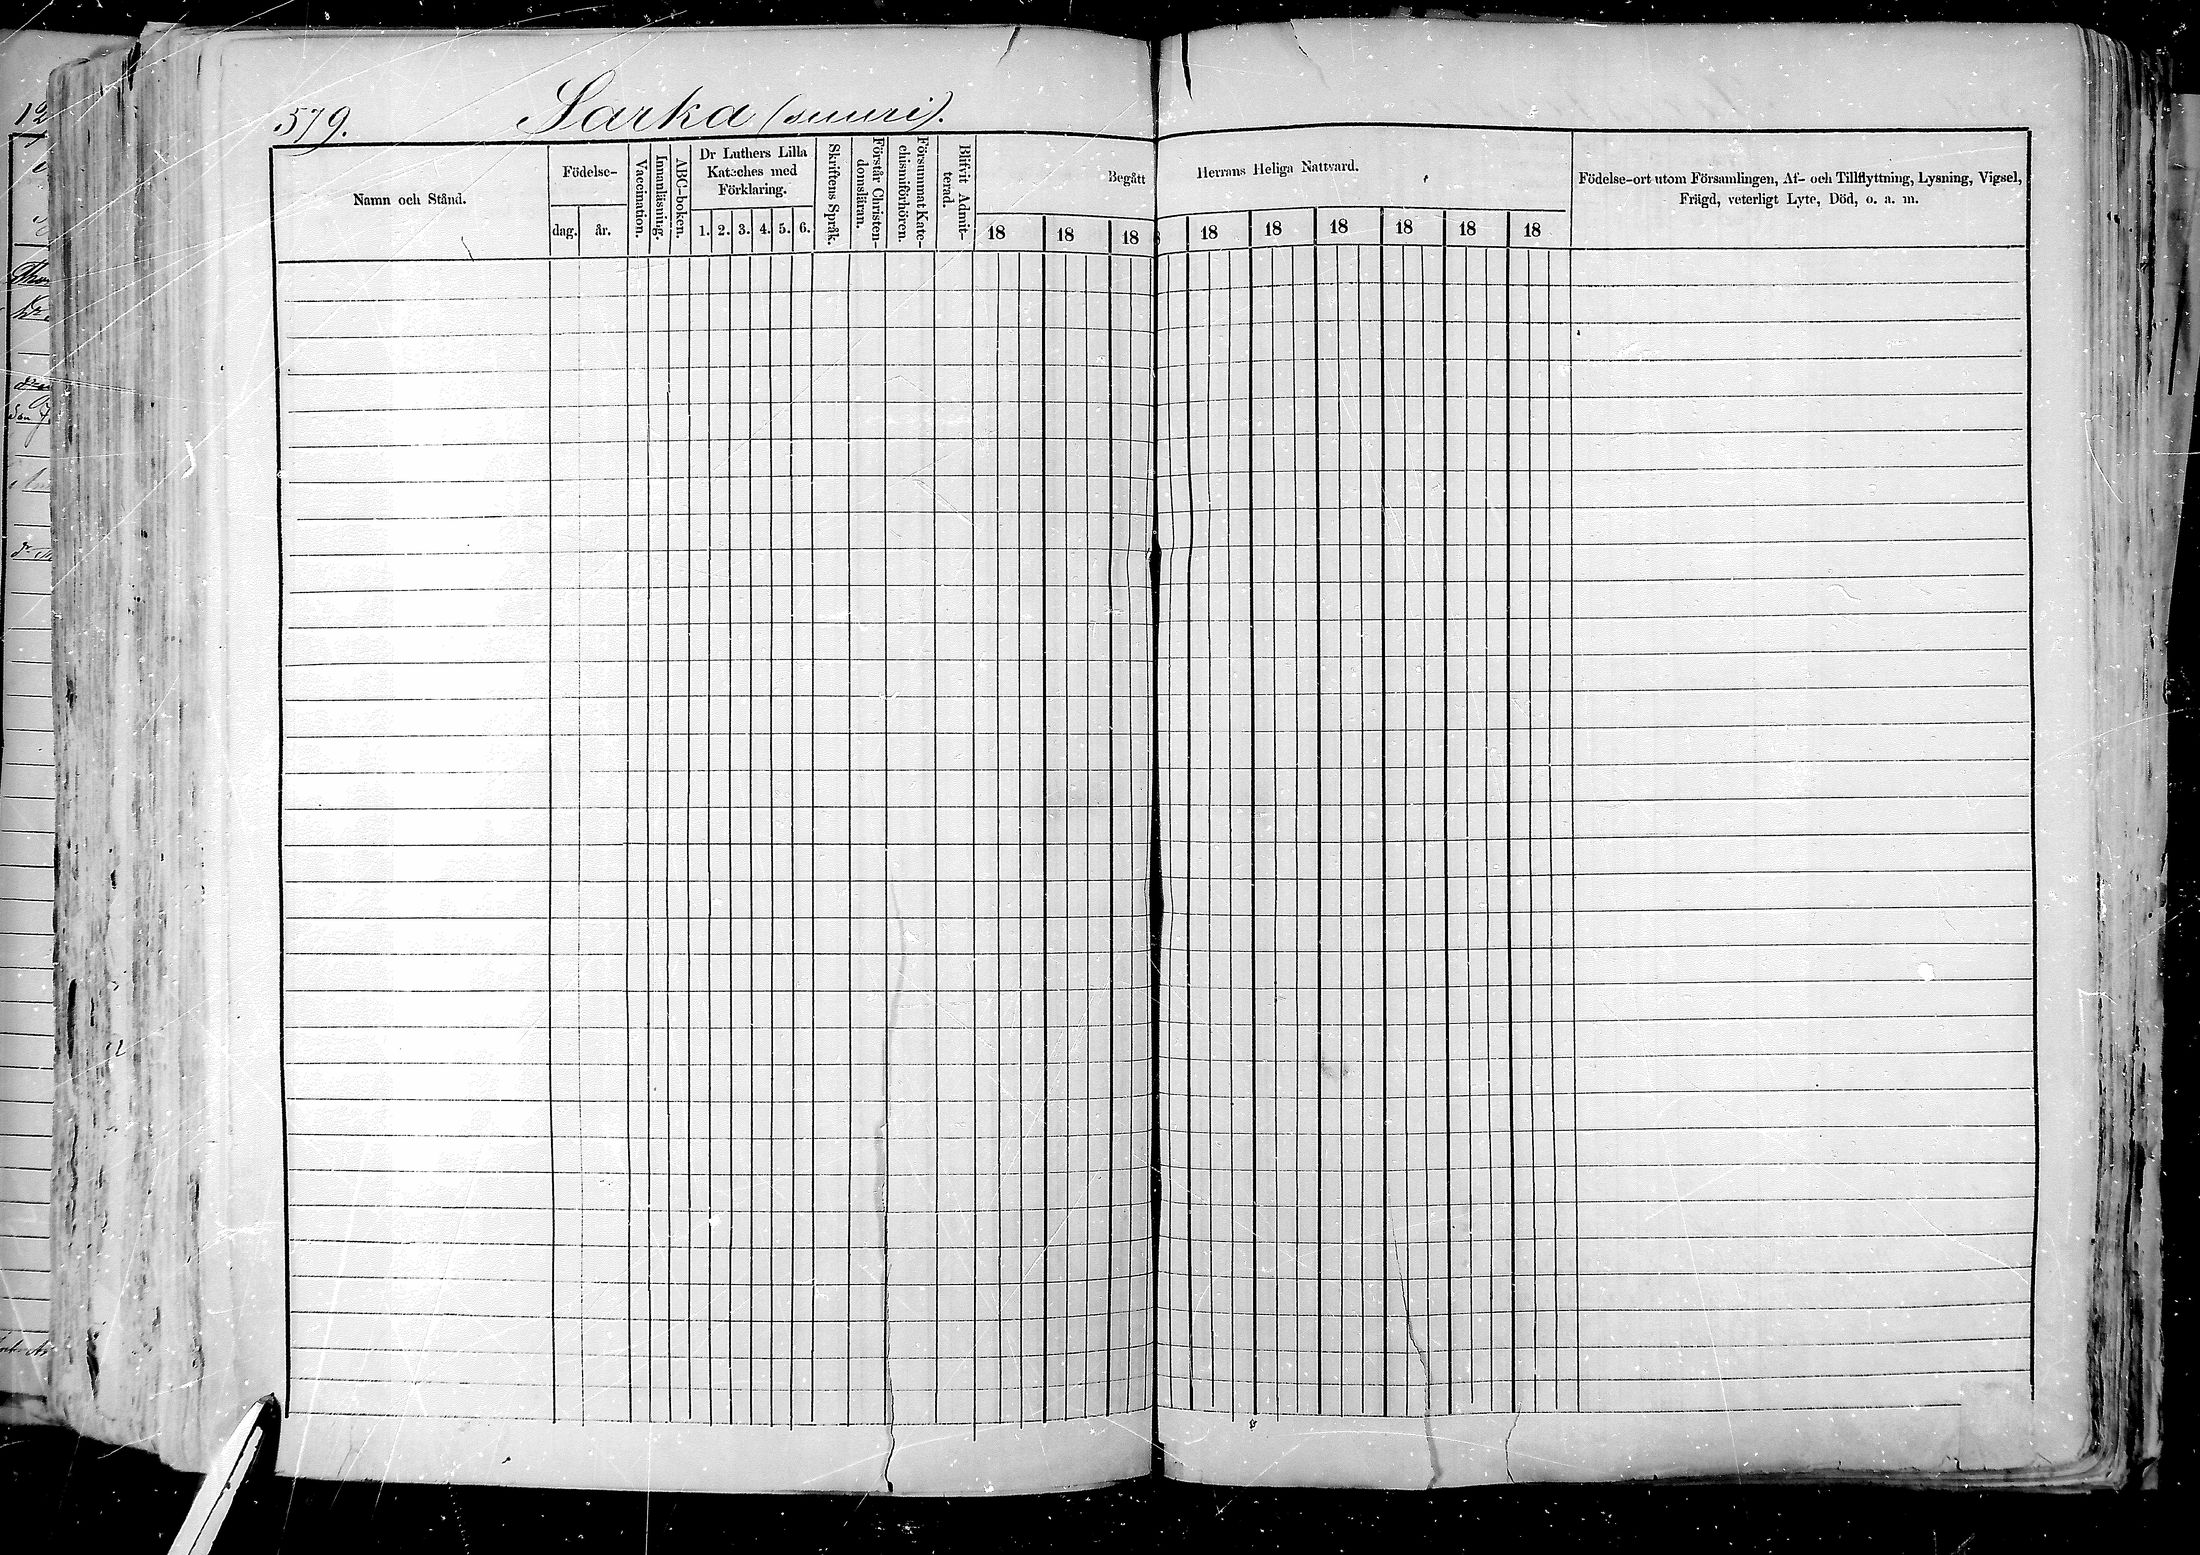 579.
Sarka (suuri).
Namn och Stånd.
Födelse-
dag. år.
Vaccination.
Innanläsning.
ABC-boken.
Dr Luthers Lilla
Kateches med
Förklaring.
1. 2. 3. 4. 5. 6.
Skriftens Språk.
Förstår Christen-
domsläran.
Försummat Kate-
chismiförhören.
Blifvit Admit-
terad.
Begått Herrans Heliga Nattvard.
18 18 18 18 18 18 18 18 18
Födelse-ort utom Församlingen, Af- och Tillflyttning, Lysning, Vigsel,
Frägd, veterligt Lyte, Död, o. a. m.